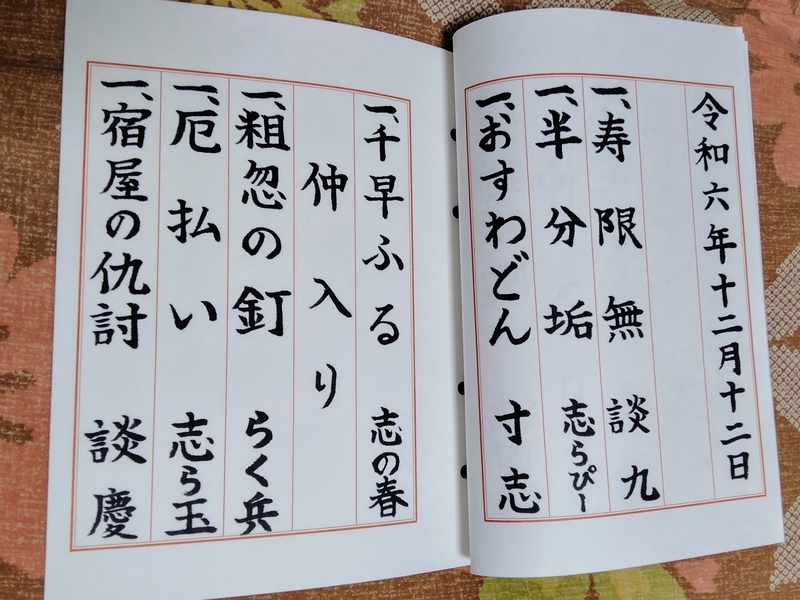 令和六年十二月十二日
一、寿限無 談九
一、半分垢 志らぴー
一、おすわどん 寸志
一、千早ふる 志の春
仲入り
一、粗忽の釘 らく兵
一、厄払い 志ら玉
一、宿屋の仇討 談慶